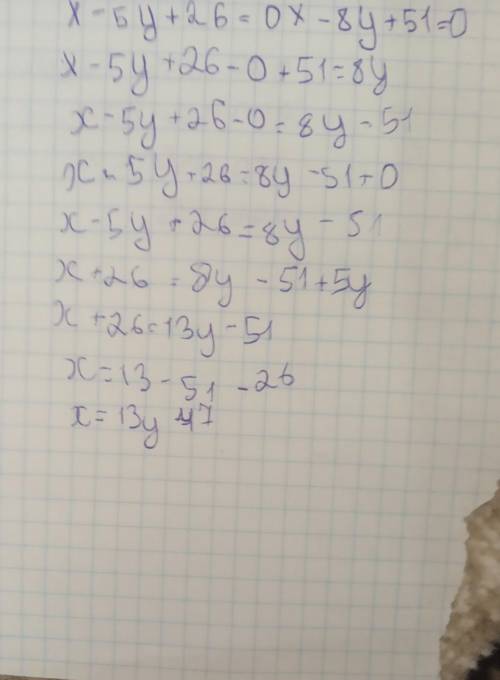 x-5y+26=0x-8y+51=0
x-5y+26-0+51=8y
x-5y+26-0=8y-51
x-5y+26=8y-51+0
x-5y+26=8y-51
x+26=8y-51+5y
x+26=13y-51
x=13-51-26
x=13y